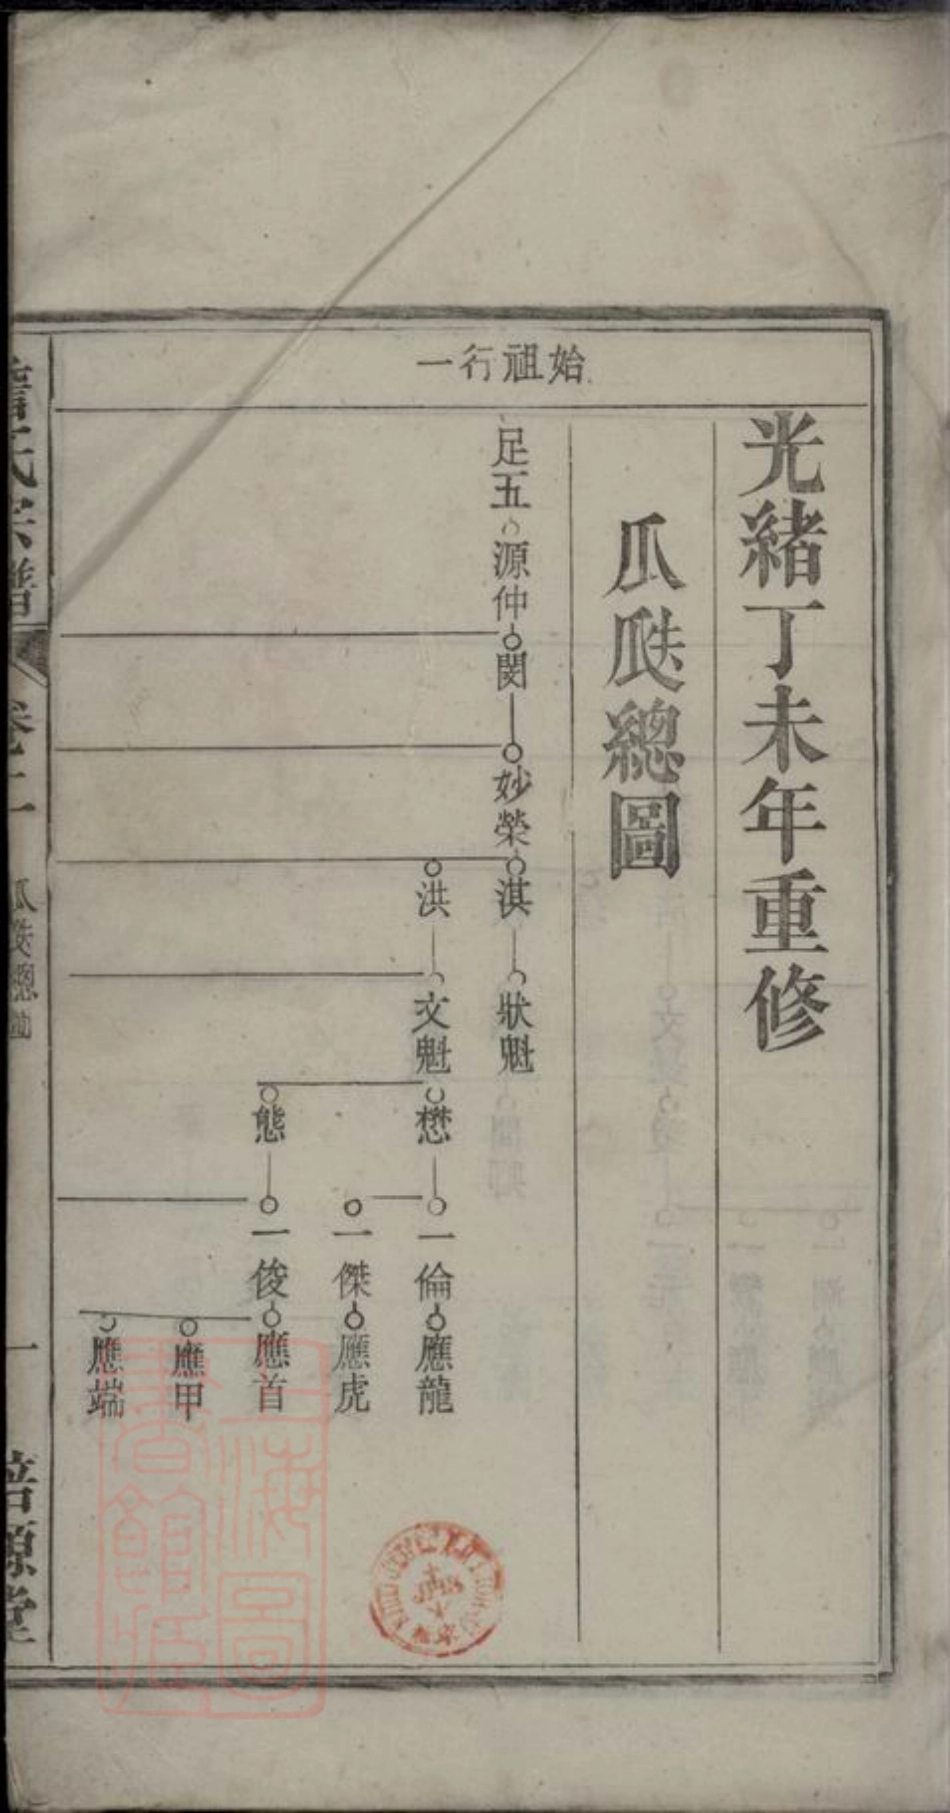 光緒丁未年重修
瓜瓞總圖
始祖行一
足五 源仲 閔 妙榮 淇 狀魁
洪 文魁 懋 一倫 應龍
一傑 應虎
態 一俊 應首
應甲
應端
氏宗譜 卷十一 瓜瓞總圖 一 培源堂
上海圖書館藏